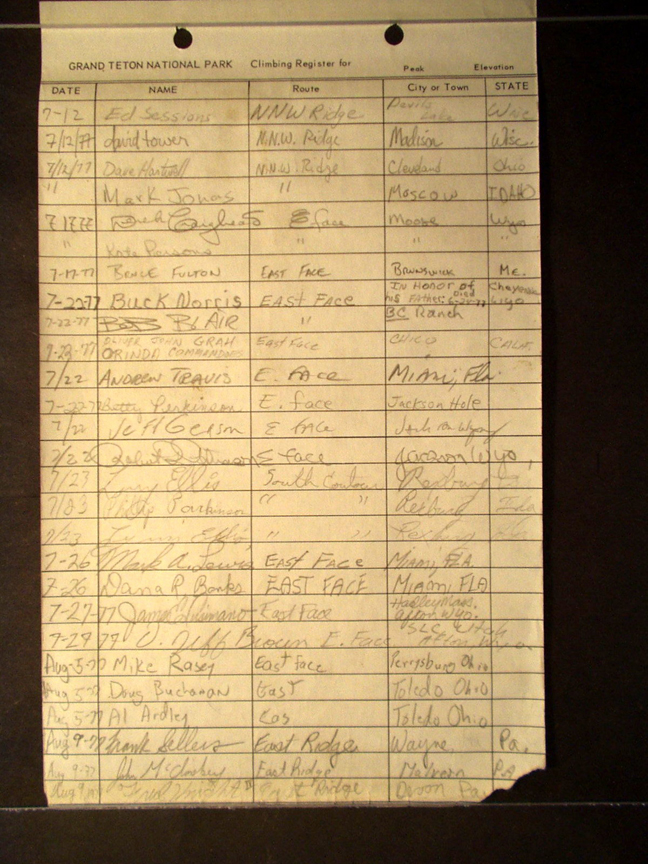 GRAND TETON NATIONAL PARK Climbing Register for Peak Elevation
DATE NAME Route City or Town STATE
7-12 Ed Sessions NNW Ridge Devils Lake Wisc
7/12/77 david tower N.N.W. Ridge Madison Wisc.
7/12/77 Dave N.N.W. Ridge Cleveland Ohio
" Mark Jonas " Moscow IDAHO
E face Moose Wyo
" Kate Parsons " " "
7-17-77 BRUCE FULTON EAST FACE BRUNSWICK Me.
7-22-77 BUCK NORRIS EAST FACE IN Honor of his Father: Died 6-22-77 Cheyenne Wyo
7-22-77 BLAIR " BC Ranch
9-23-77 OLIVER JOHN GRAH ORINDA COMMANDOES East Face CHICO CALIF.
7/22 ANDREW TRAVIS E. FACE MIAMI, Fla.
7-22-77 Betty Parkinson E. face Jackson Hole
7/22 Jeff Gerson E FACE
7/22 E face Wyo,
7/23 Ellis South Couloir Rexburg
7/23 Philip Parkinson " " Rexburg Ida
7/23 Lynn Ellis " " Rexburg
7-26 Mark A. Lewis EAST FACE MIAMI, FLA.
7-26 Dana R. Banks EAST FACE MIAMI, FLA
7-27-77 East Face Hadley Mass. Afton Wyo.
7-29 77 Jeff Brown E. Face SLC Utah Afton Wyo
Aug-5-77 Mike Rasey East face Perrysburg Ohio
Aug 5-77 Doug Buchanan East Toledo Ohio
Aug 5-77 Al Ardley Eas Toledo Ohio
Aug 9-77 Frank Sellers East Ridge Wayne, Pa.
Aug 9-77 John East Ridge Malvern PA
Aug 9 East Ridge Pa